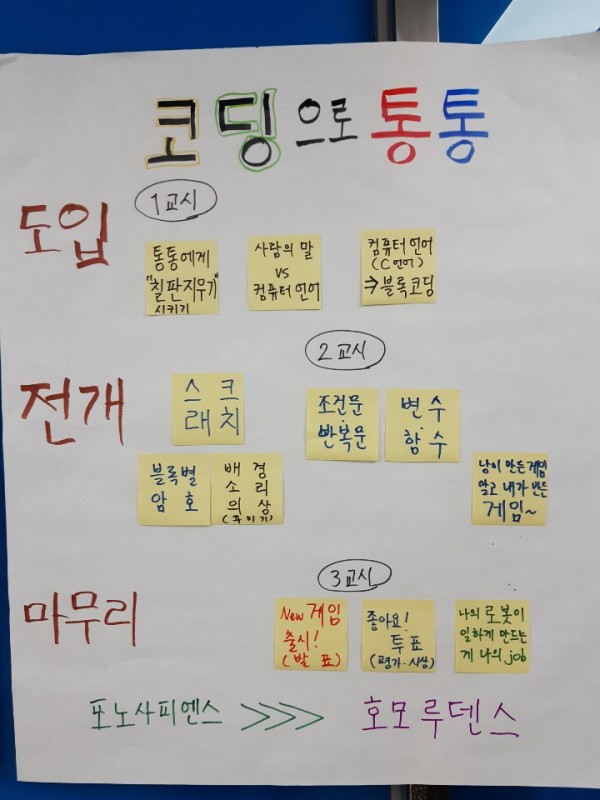 코딩으로 통통
도입
1교시
통통에게
"칠판지우기"
시키기
사람의 말
vs
컴퓨터 언어
컴퓨터 언어
(C언어)
⇒블록코딩
전개
스크
래치
2교시
조건문
반복문
변수
함수
블록별
암호
배경
소리
의상
(꾸미기)
남이 만든 게임
말고 내가 만든
게임~
마무리
3교시
New 게임
출시!
(발표)
좋아요!
투표
(평가·시상)
나의 로봇이
일하게 만드는
게 나의 job
포노사피엔스 >>> 호모루덴스